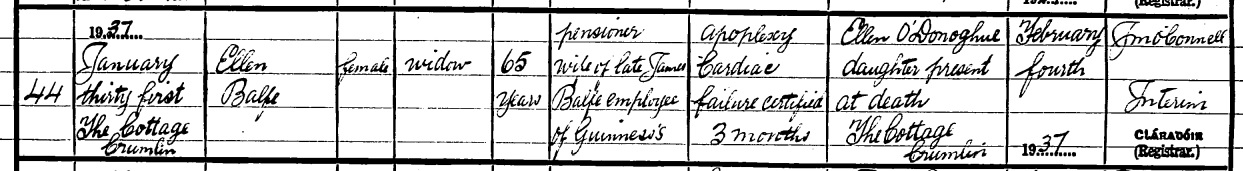 (Registrar.)
44
1937
January
thirty first
The Cottage
Crumlin
Ellen
Balfe
female
widow
65
years
pensioner
wife of late James
Balfe employee
of Guinness's
apoplexy
Cardiac
failure certified
3 months
Ellen O'Donoghue
daughter present
at death
The Cottage
Crumlin
February
fourth
1937
Interim
CLÁRADÓIR
(Registrar.)